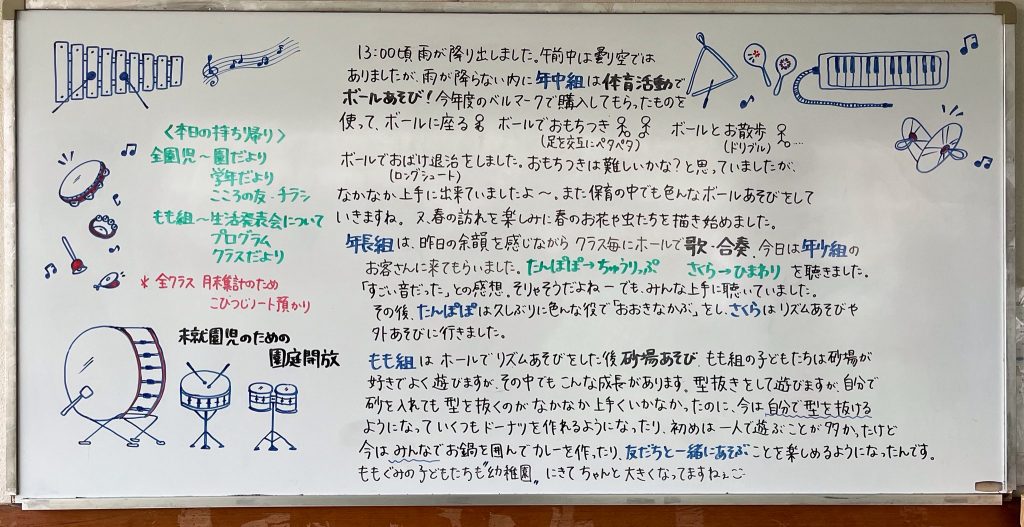 〈本日の持ち帰り〉
全園児～園だより
学年だより
こころの友・チラシ
もも組～生活発表会について
プログラム
クラスだより
*全クラス 月末集計のため
こひつじノート預かり
未就園児のための
園庭開放
13:00頃雨が降り出しました。午前中は曇り空では
ありましたが、雨が降らない内に年中組は体育活動で
ボールあそび!今年度のベルマークで購入してもらったものを
使って、ボールに座る ボールでおもちつき ボールとお散歩 …
(足を交互にペタペタ) (ドリブル)
ボールでおばけ退治をしました。おもちつきは難しいかな?と思っていましたが、
(ロングシュート)
なかなか上手に出来ていましたよ～。また保育の中でも色んなボールあそびをして
いきますね。又、春の訪れを楽しみに春のお花や虫たちを描き始めました。
年長組は、昨日の余韻を感じながらクラス毎にホールで歌・合奏、今日は年少組の
お客さんに来てもらいました。たんぽぽ→ちゅうりっぷ さくら→ひまわり を聴きました。
「すごい音だった」との感想。そりゃそうだよねーでも、みんな上手に聴いていました。
その後、たんぽぽは久しぶりに色んな役で「おおきなかぶ」をし、さくらはリズムあそびや
外あそびに行きました。
もも組は ホールでリズムあそびをした後 砂場あそび、もも組の子どもたちは砂場が
好きでよく遊びますが、その中でもこんな成長があります。型抜きをして遊びますが、自分で
砂を入れても型を抜くのがなかなか上手くいかなかったのに、今は自分で型を抜ける
ようになっていくつもドーナツを作れるようになったり、初めは一人で遊ぶことが多かったけど
今はみんなでお鍋を囲んでカレーを作ったり、友だちと一緒にあそぶことを楽しめるようになったんです。
ももぐみの子どもたちも"幼稚園"にきてちゃんと大きくなってますねぇ